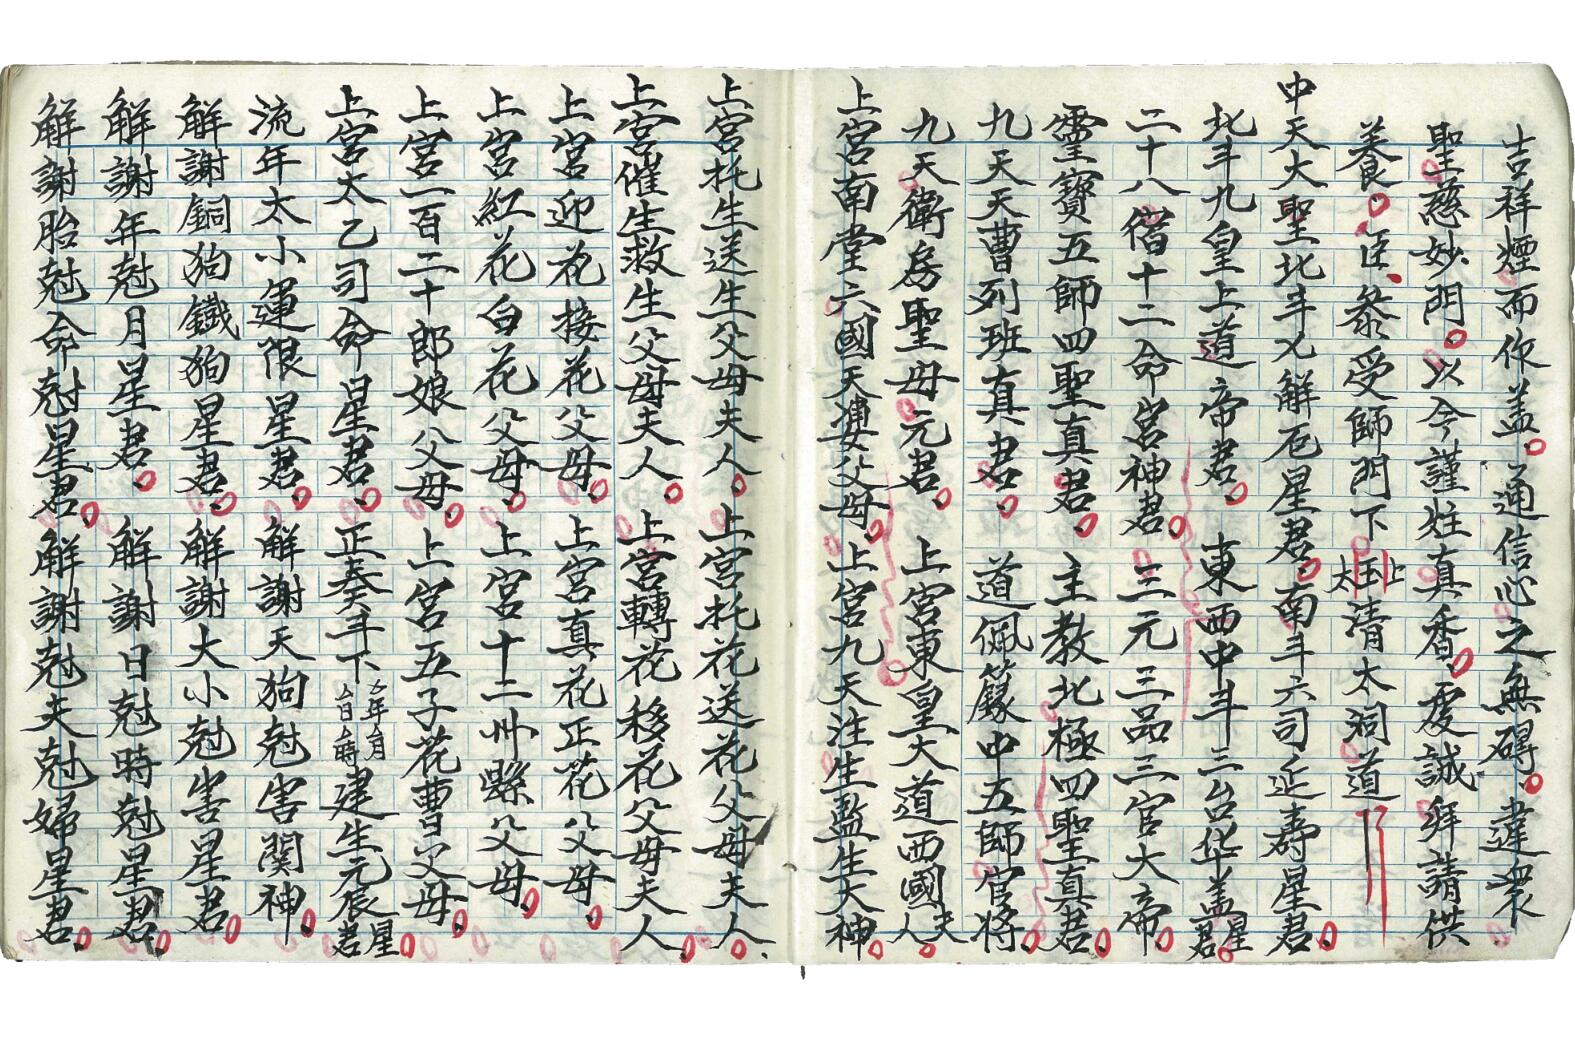 吉祥煙而作盖。通信心之無碍。違衆
聖慈妙門。以今謹炷真香。虔誠拜請供
養。臣、叅受師門下上玉太清太洞道
中天大聖北斗乂解厄星君。南斗六司延壽星君。
北斗九皇上道帝君。東西中斗三台华盖星君
二十八僧十二命宮神君。三元三品三官大帝。
靈寶五師四聖真君。主教北極四聖真君。
九天天曹列班真君。道佩籙中五師官将。
九天衛房聖母元君。上宮東皇大道西國夫人。
上宮南堂六國天婆父母。上宮九天注生監生大神。
上宮托生送生父母夫人。上宮托花送花父母夫人。
上宮催生救生父母夫人。上宮轉花移花父母夫人。
上宮迎花接花父母。上宮真花正花父母。
上宮紅花白花父母。上宮十二州縣父母。
上宮一百二十郎娘父母。上宮五子花曹父母。
上宮太乙司命星君。正奏斗下厶年厶月厶日厶時建生元辰星君。
流年太小運限星君。解謝天狗尅害関神。
解謝銅狗鐵狗星君。解謝大小尅害星君。
解謝年尅月星君。解謝日尅時尅星君。
解謝胎尅命尅星君。解謝尅夫尅婦星君。